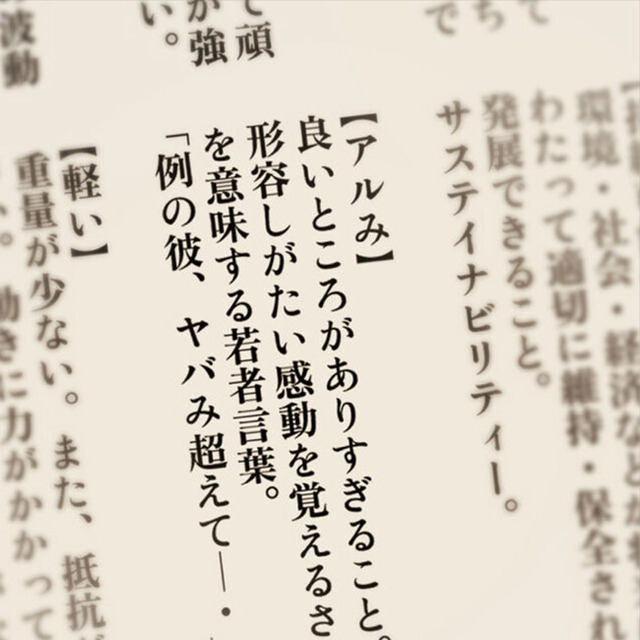 環境・社会・経済などが
わたって適切に維持・保全され
発展できること。
サステイナビリティー。
【アルみ】
良いところがありすぎること。
形容しがたい感動を覚えるさ
を意味する若者言葉。
「例の彼、ヤバみ超えて—・
て頑
が強
い。
【軽い】
重量が少ない。また、抵抗が
動きに力がかかって
波動